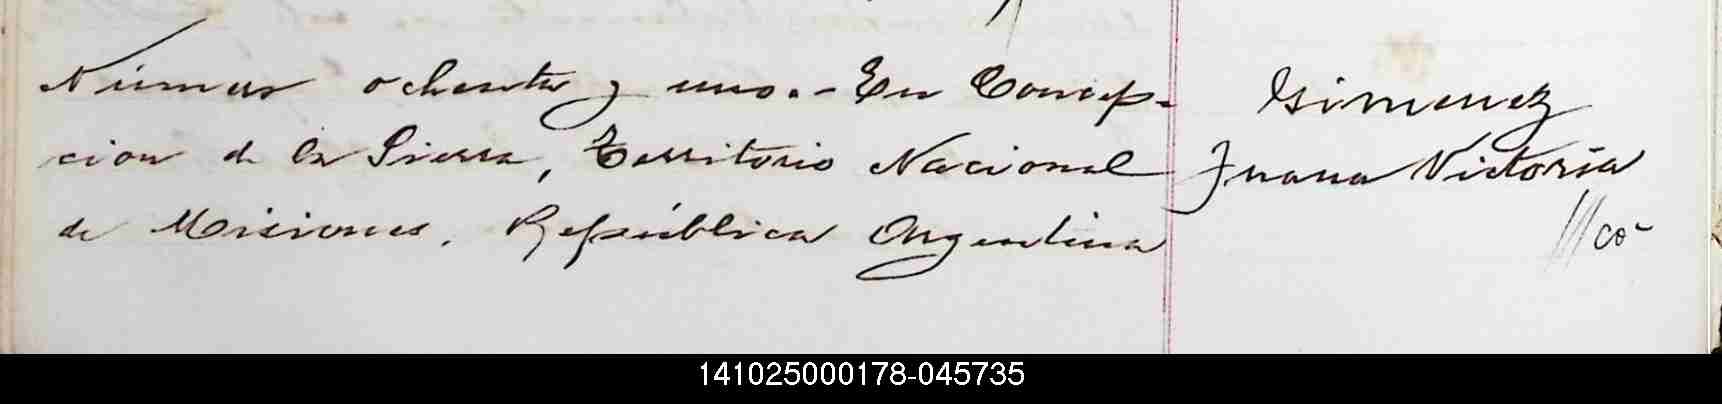 Número ochenta y uno.- En Concep-
cion de la Sierra, Territorio Nacional
de Misiones, República Argentina
Gimenez
Juana Victoria
141025000178-045735